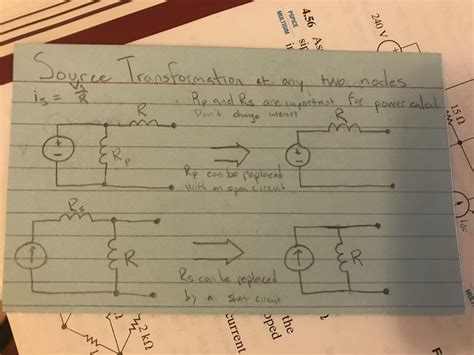 Source Transformation at any two nodes
is = Vs/R
Rp and Rs are important for power calculat
Don't change interest
R
Rp
R
Rp can be replaced
with an open circuit
Rs
R
R
Rs can be replaced
by a short circuit
4.56 As
PSPICE
MULTISIM
240 V
15 Ω
idc
2 kΩ
urrent
oped
the